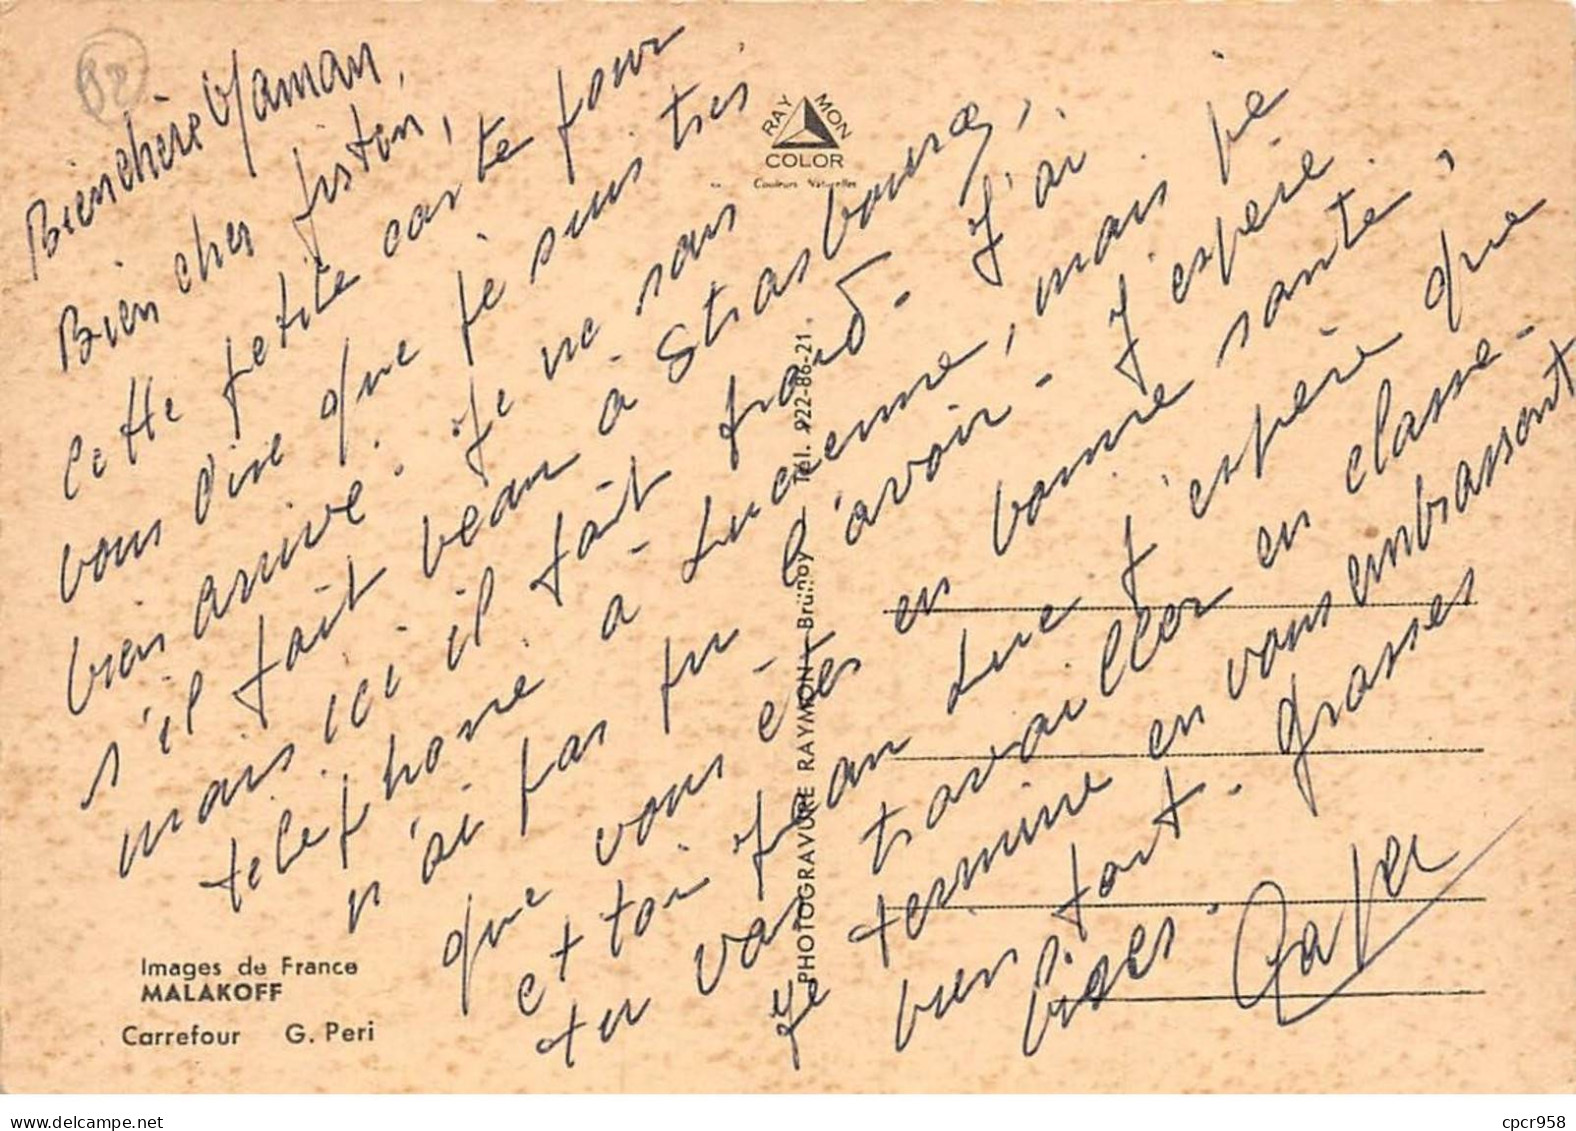 Bien chère Maman,
Bien cher fiston,
Cette petite carte pour
vous dire que je suis très
bien arrivé. Je ne sais
s'il fait beau à Strasbourg,
mais ici il fait froid. J'ai
téléphoné à Lucienne, mais je
n'ai pas pu l'avoir. J'espère
que vous êtes en bonne santé,
et toi Jean Luc j'espère que
tu vas travailler en classe.
Je termine en vous embrassant
bien fort. Grosses
bises.
RAYMON
COLOR
Couleurs Naturelles
PHOTOGRAVURE RAYMON - Brunoy - Tél. 922-86-21
Images de France
MALAKOFF
Carrefour G. Peri
delcampe.net
cpcr958